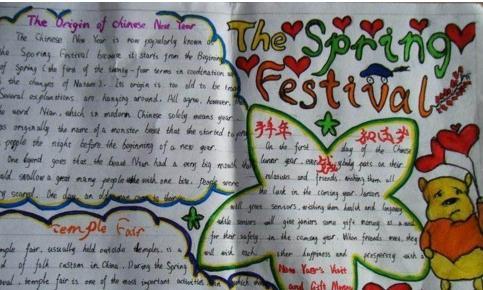 The Origin of Chinese New Year
The Chinese New Year is now popularly known as
the Spring Festival because it starts from the Beginning
of Spring (the first of the twenty-four terms in coordination with
the changes of Nature). Its origin is too old to be traced
Several explanations are hanging around. All agree, however, that
word Nian, which in modern Chinese solely means year
as originally the name of a monster beast that the started to prey
people the night before the beginning of a new year.
One legend goes that the beast Nian had a very big mouth that
would swallow a great many people with one bite. People were
very scared. One day, an old man came
Temple Fair
Temple fair, usually held outside temples, is a
of folk custom in China. During the Spring
temple fair is one of the most important activities in which
The Spring
Festival
On the first day of the Chinese
lunar year, everybody pays on their
relatives and friends, wishing them all
the luck in the coming year. Juniors
will greet seniors, wishing them health and longevity
while seniors will give juniors some gift money as a
for their safety in the coming year. When friends meet, they
will wish each other happiness and prosperity with a
New Year's Visit
and Gift Money